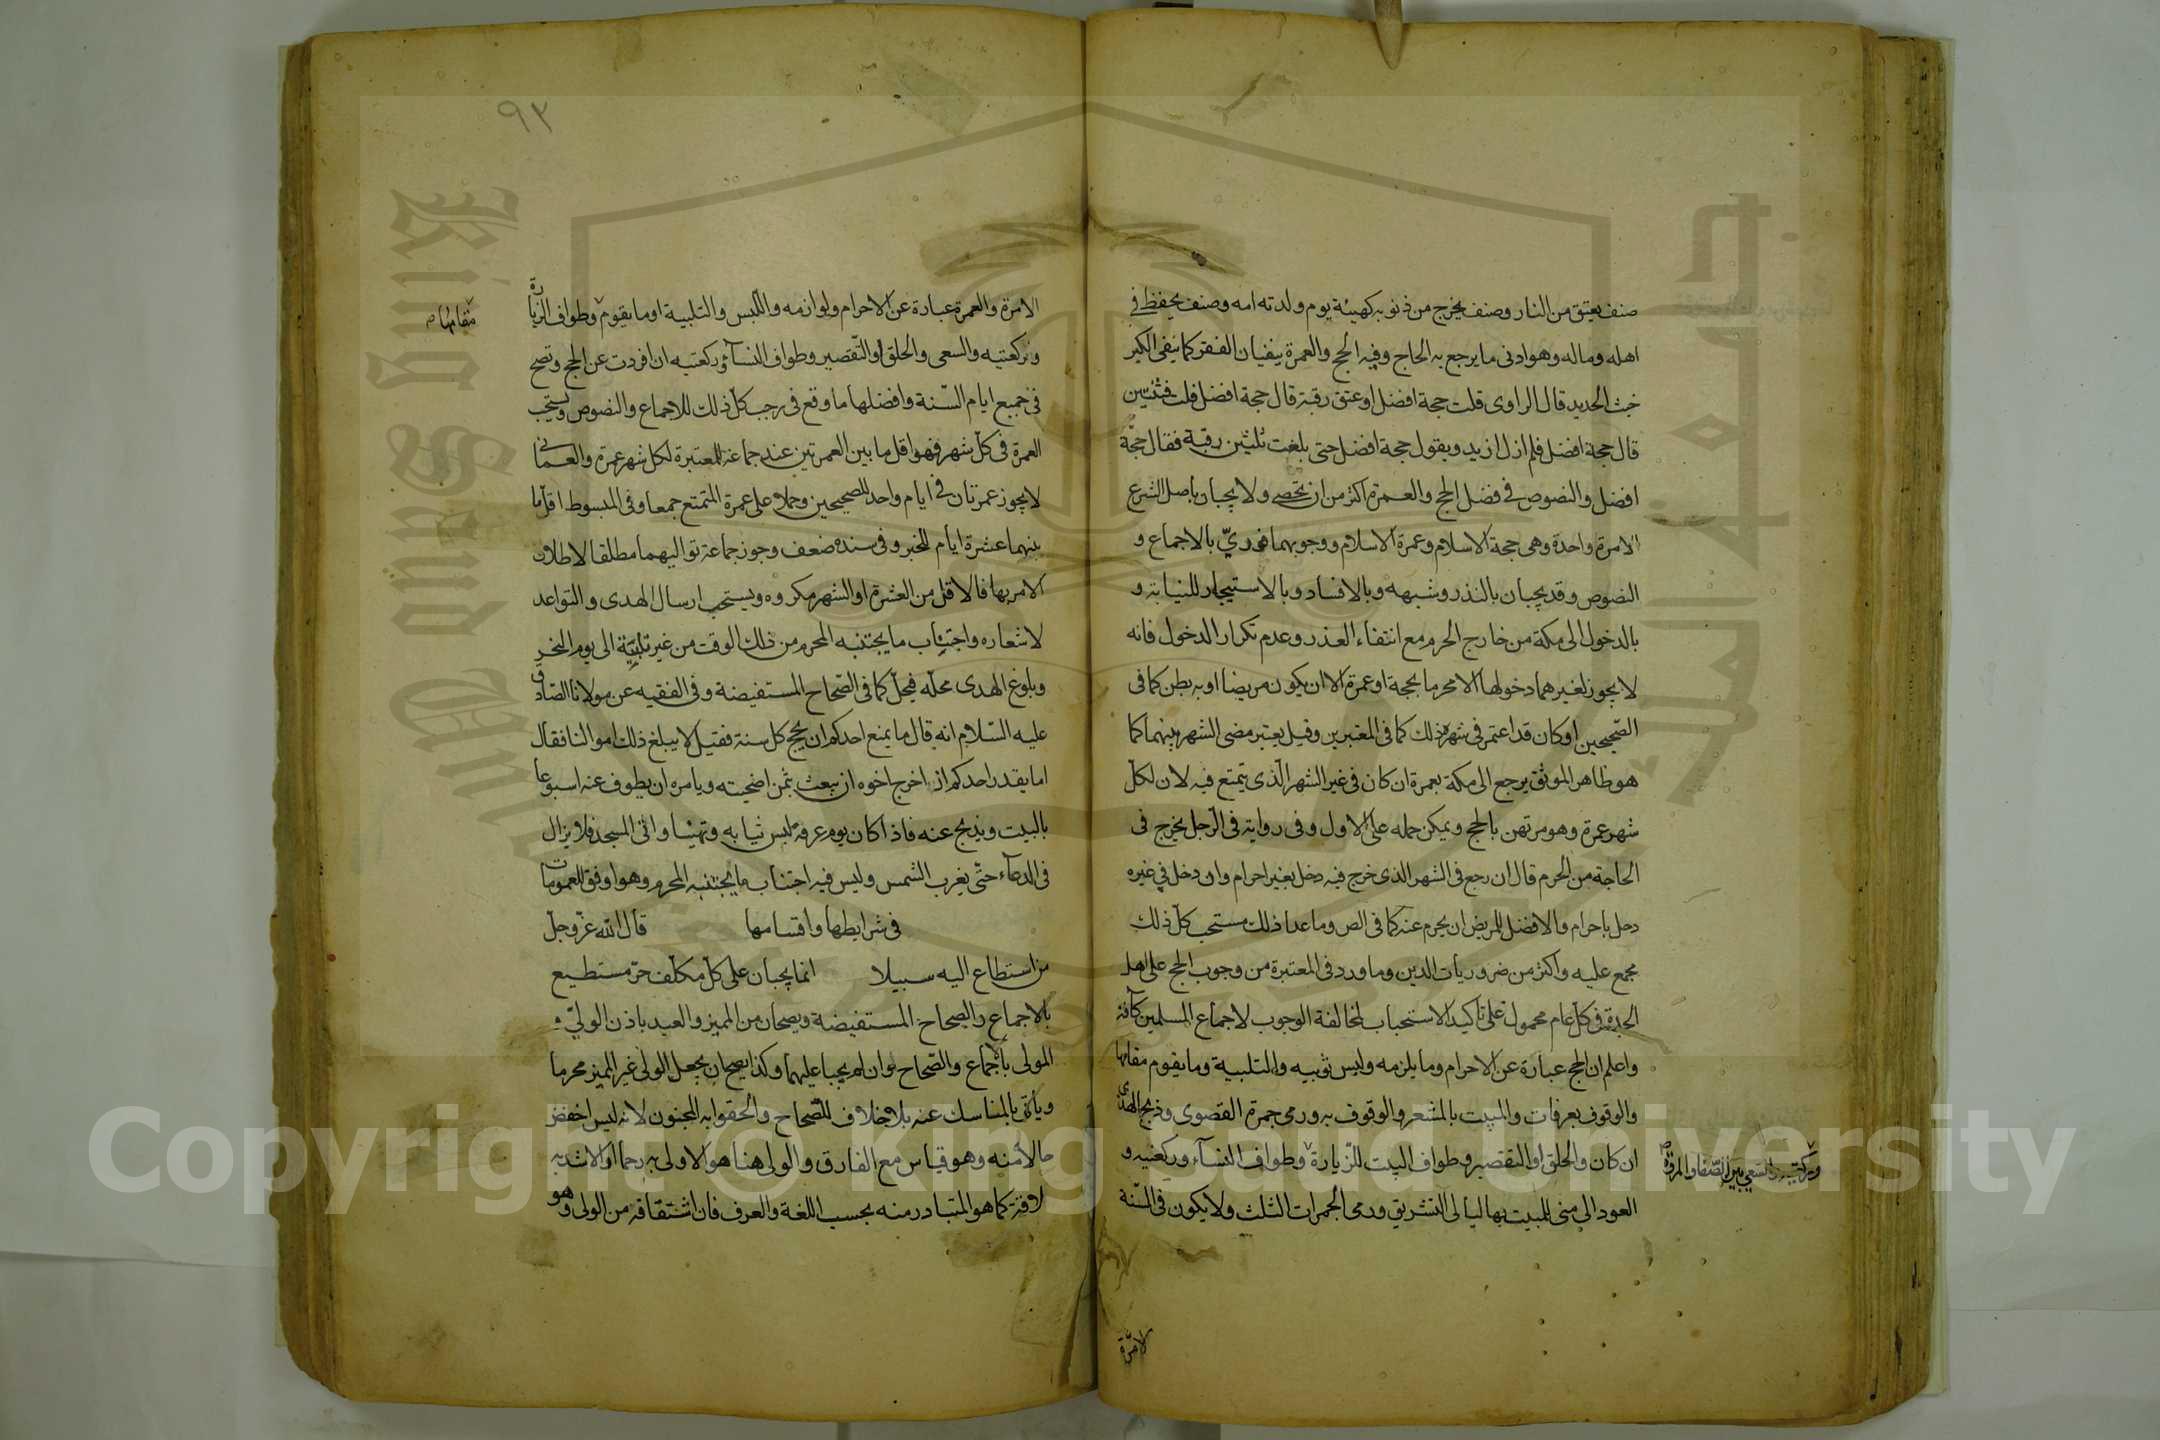 صنف يعتق من النار وصنف يخرج من ذنوبه كهيئة يوم ولدته امه وصنف يحفظ في
اهله وماله وهو ادنى ما يرجع به الحاج وفيه الحج والعمرة ينفيان الفقر كما ينفى الكير
خبث الحديد قال الراوى قلت حجة افضل او عتق رقبة قال حجة افضل قلت فثنتين
قال حجة افضل فلم ازل ازيد ويقول حجة افضل حتى بلغت ثلثين رقبة فقال حجة
افضل والنصوص في فضل الحج والعمرة اكثر من ان تحصى ولا يجبان باصل الشرع
الا مرة واحدة وهى حجة الاسلام وعمرة الاسلام ووجوبهما فورىّ بالاجماع و
النصوص وقد يجبان بالنذر وشبهه وبالافساد وبالاستيجار للنيابة و
بالدخول الى مكة من خارج الحرم مع انتفاء العذر وعدم تكرار الدخول فانه
لا يجوز لغيرهما دخولها الا محرما بحجة او عمرة الا ان يكون مريضا او به بطن كما فى
الصحيحين او كان قد اعتمر فى شهره ذلك كما فى المعتبرين وقيل يعتبر مضى الشهر بينهما كما
هو ظاهر الموثق يرجع الى مكة بعمرة ان كان فى غير الشهر الذى يتمتع فيه لان لكل
شهر عمرة وهو مرتهن بالحج ويمكن حمله على الاول وفى رواية فى الرجل يخرج فى
الحاجة من الحرم قال ان رجع فى الشهر الذى خرج فيه دخل بغير احرام وان دخل في غيره
دخل باحرام والافضل للمريض ان يحرم عنه كما فى الص وما عدا ذلك مستحب كل ذلك
مجمع عليه واكثر من ضروريات الدين وما ورد فى المعتبرة من وجوب الحج على اهل
الجدة فى كل عام محمول على تأكيد الاستحباب لمخالفة الوجوب لاجماع المسلمين كآفة
واعلم ان الحج عبارة عن الاحرام وما يلزمه ولبس ثوبيه والتلبية وما يقوم مقامها
والوقوف بعرفات والمبيت بالمشعر والوقوف به ورمى جمرة القصوى وذبح الهدى
ان كان والحلق او التقصير وطواف البيت للزيارة وطواف النسآء وركعتيه و
وركعتيه والسعى بين الصفا والمروة
العود الى منى للمبيت بها ليالى التشريق ورمى الجمرات الثلث ولا يكون فى السنة
الا مرة
٩٣
الا مرة والعمرة عبارة عن الاحرام ولوازمه واللبس والتلبية او ما يقوم وطواف الزيارة
مقامها
وركعتيه والسعى والحلق او التقصير وطواف النسآء وركعتيه ان افردت عن الحج وتصح
فى جميع ايام السنة وافضلها ما وقع فى رجب كل ذلك للاجماع والنصوص ويستحب
العمرة فى كل شهر فهو اقل ما بين العمرتين عند جماعة للمعتبرة لكل شهر عمرة والعمانى
لا يجوز عمرتان فى ايام واحد للصحيحين وحملا على عمرة المتمتع جمعا وفى المبسوط اقل ما
بينهما عشرة ايام للخبر وفى سنده ضعف وجوز جماعة تواليهما مطلقا لاطلاق
الامر بها فالاقل من العشرة او الشهر مكروه ويستحب ارسال الهدى والتواعد
لاشعاره واجتناب ما يجتنبه المحرم من ذلك الوقت من غير تلبية الى يوم النحر
وبلوغ الهدى محله فيحل كما فى الصحاح المستفيضة وفى الفقيه عن مولانا الصادق
عليه السلام انه قال ما يمنع احدكم ان يحج كل سنة فقيل لا يبلغ ذلك اموالنا فقال
اما يقدر احدكم اذا خرج اخوه ان يبعث بثمن اضحيته ويامره ان يطوف عنه اسبوعا
بالبيت ويذبح عنه فاذا كان يوم عرفة لبس ثيابه وتهيّا واتى المسجد فلا يزال
فى الدعآء حتى يغرب الشمس وليس فيه اجتناب ما يجتنبه المحرم وهو اوفق للعمومات
فى شرايطها واقسامها قال الله عز وجل
من استطاع اليه سبيلا انما يجبان على كل مكلف حر مستطيع
بالاجماع والصحاح المستفيضة ويصحان من المميز والعبد باذن الولىّ و
المولى باجماع والصحاح وان لم يجبا عليهما وكذا يصح ان يجعل الولى غير المميز محرما
ويأتى بالمناسك عنه بلا خلاف للصحاح والحقوا به المجنون لانه ليس اخفض
حالا منه وهو قياس مع الفارق والولى هنا هو الاولى به رحما او الاشد به
لاقة كما هو المتبادر منه بحسب اللغة والعرف فان اشتقاقه من الولى وهو